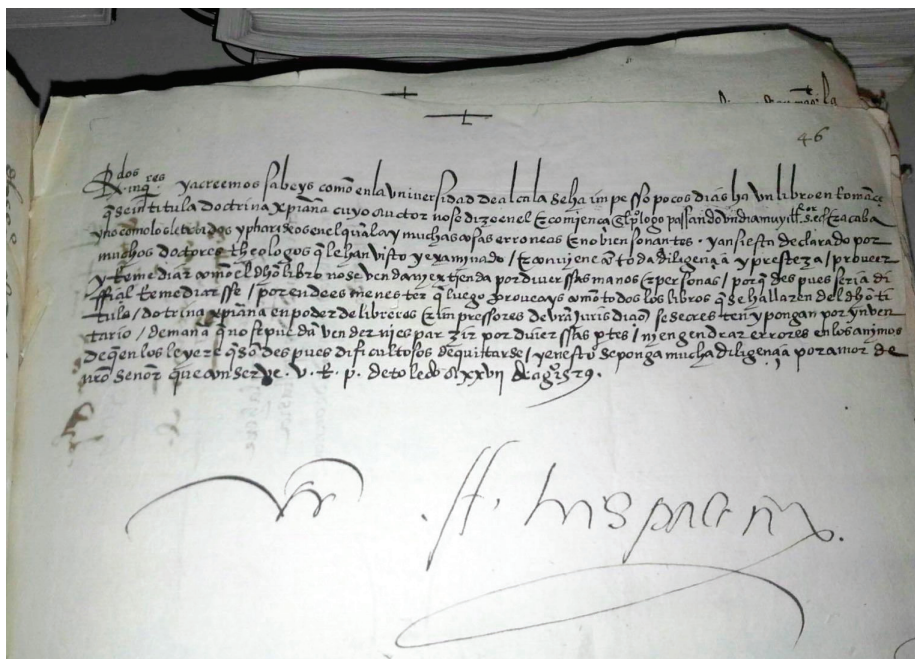 46
Rdos. inqres. ya creemos sabeys como en la universidad de alcala se ha impresso pocos dias ha un libro en romãce
q̃ se intitula doctrina xp̃iana cuyo auctor no se dize en el E comiença el p̃logo passando un dia muy Ill. señor E acaba
y no como los letrados y phariseos en el qual ay muchas cosas erroneas E no bien sonantes . y ansi esta declarado por
muchos doctores theologos q̃ le han visto y examinado / E conviene cõ toda diligẽcia y presteza / proveer
y Remediar como el dho libro no se venda ny extienda por diverssas manos E personas / porq̃ despues seria di
fficil Remediarsse / por ende es menester q̃ luego proveays como todos los libros q̃ se hallaren del dho ti
tulo / dotrina xp̃iana en poder de libreros E impressores de vr̃a Jurisdiciõ se secresten y pongan por ynven
tario / de mana q̃ no se puedã vender ni esparzir por diverssas ptes / ni engendrar errores en los animos
de q̃en los leyere q̃ sõ despues dificultosos de quittarse / y en esto se ponga mucha diligẽcia por amor de
nr̃o señor que conserve . v . R . p . de toledo A xxvij de agº 1529 .
.A. hispalen̄.